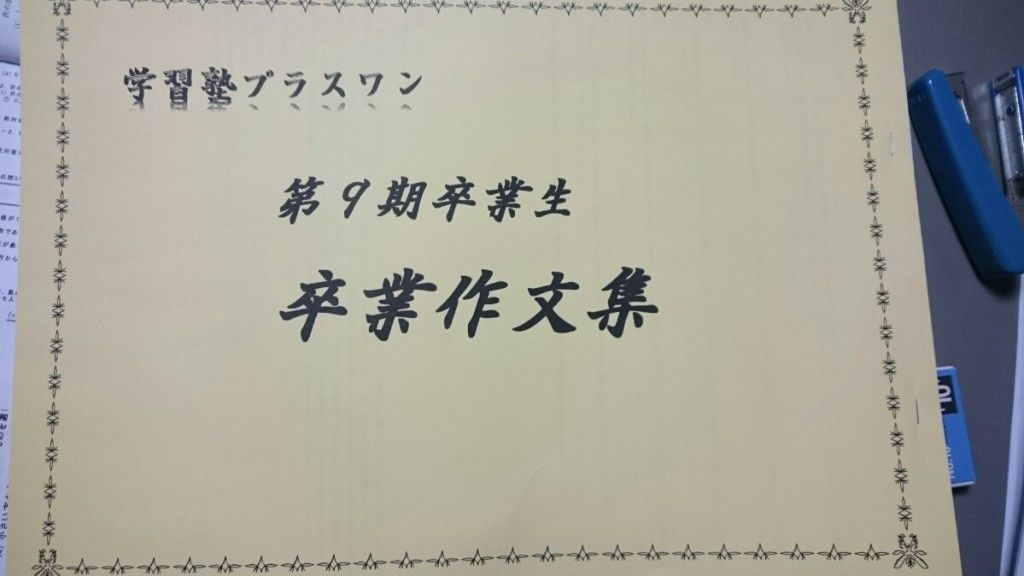 学習塾プラスワン
第9期卒業生
卒業作文集